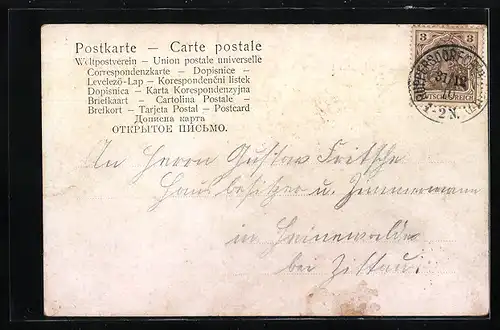 Postkarte – Carte postale
Weltpostverein – Union postale universelle
Correspondenzkarte – Dopisnice –
Levelező-Lap – Korespondenční listek
Dopisnica – Karta Korespondenzyjna
Briefkaart – Cartolina Postale –
Brefkort – Tarjeta Postal – Postcard
Дописна карта
ОТКРЫТОЕ ПИСЬМО.
3 3
An Herrn Gustav Fritsche
Hausbesitzer u. Zimmermann
in Hainewalde
bei Zittau.